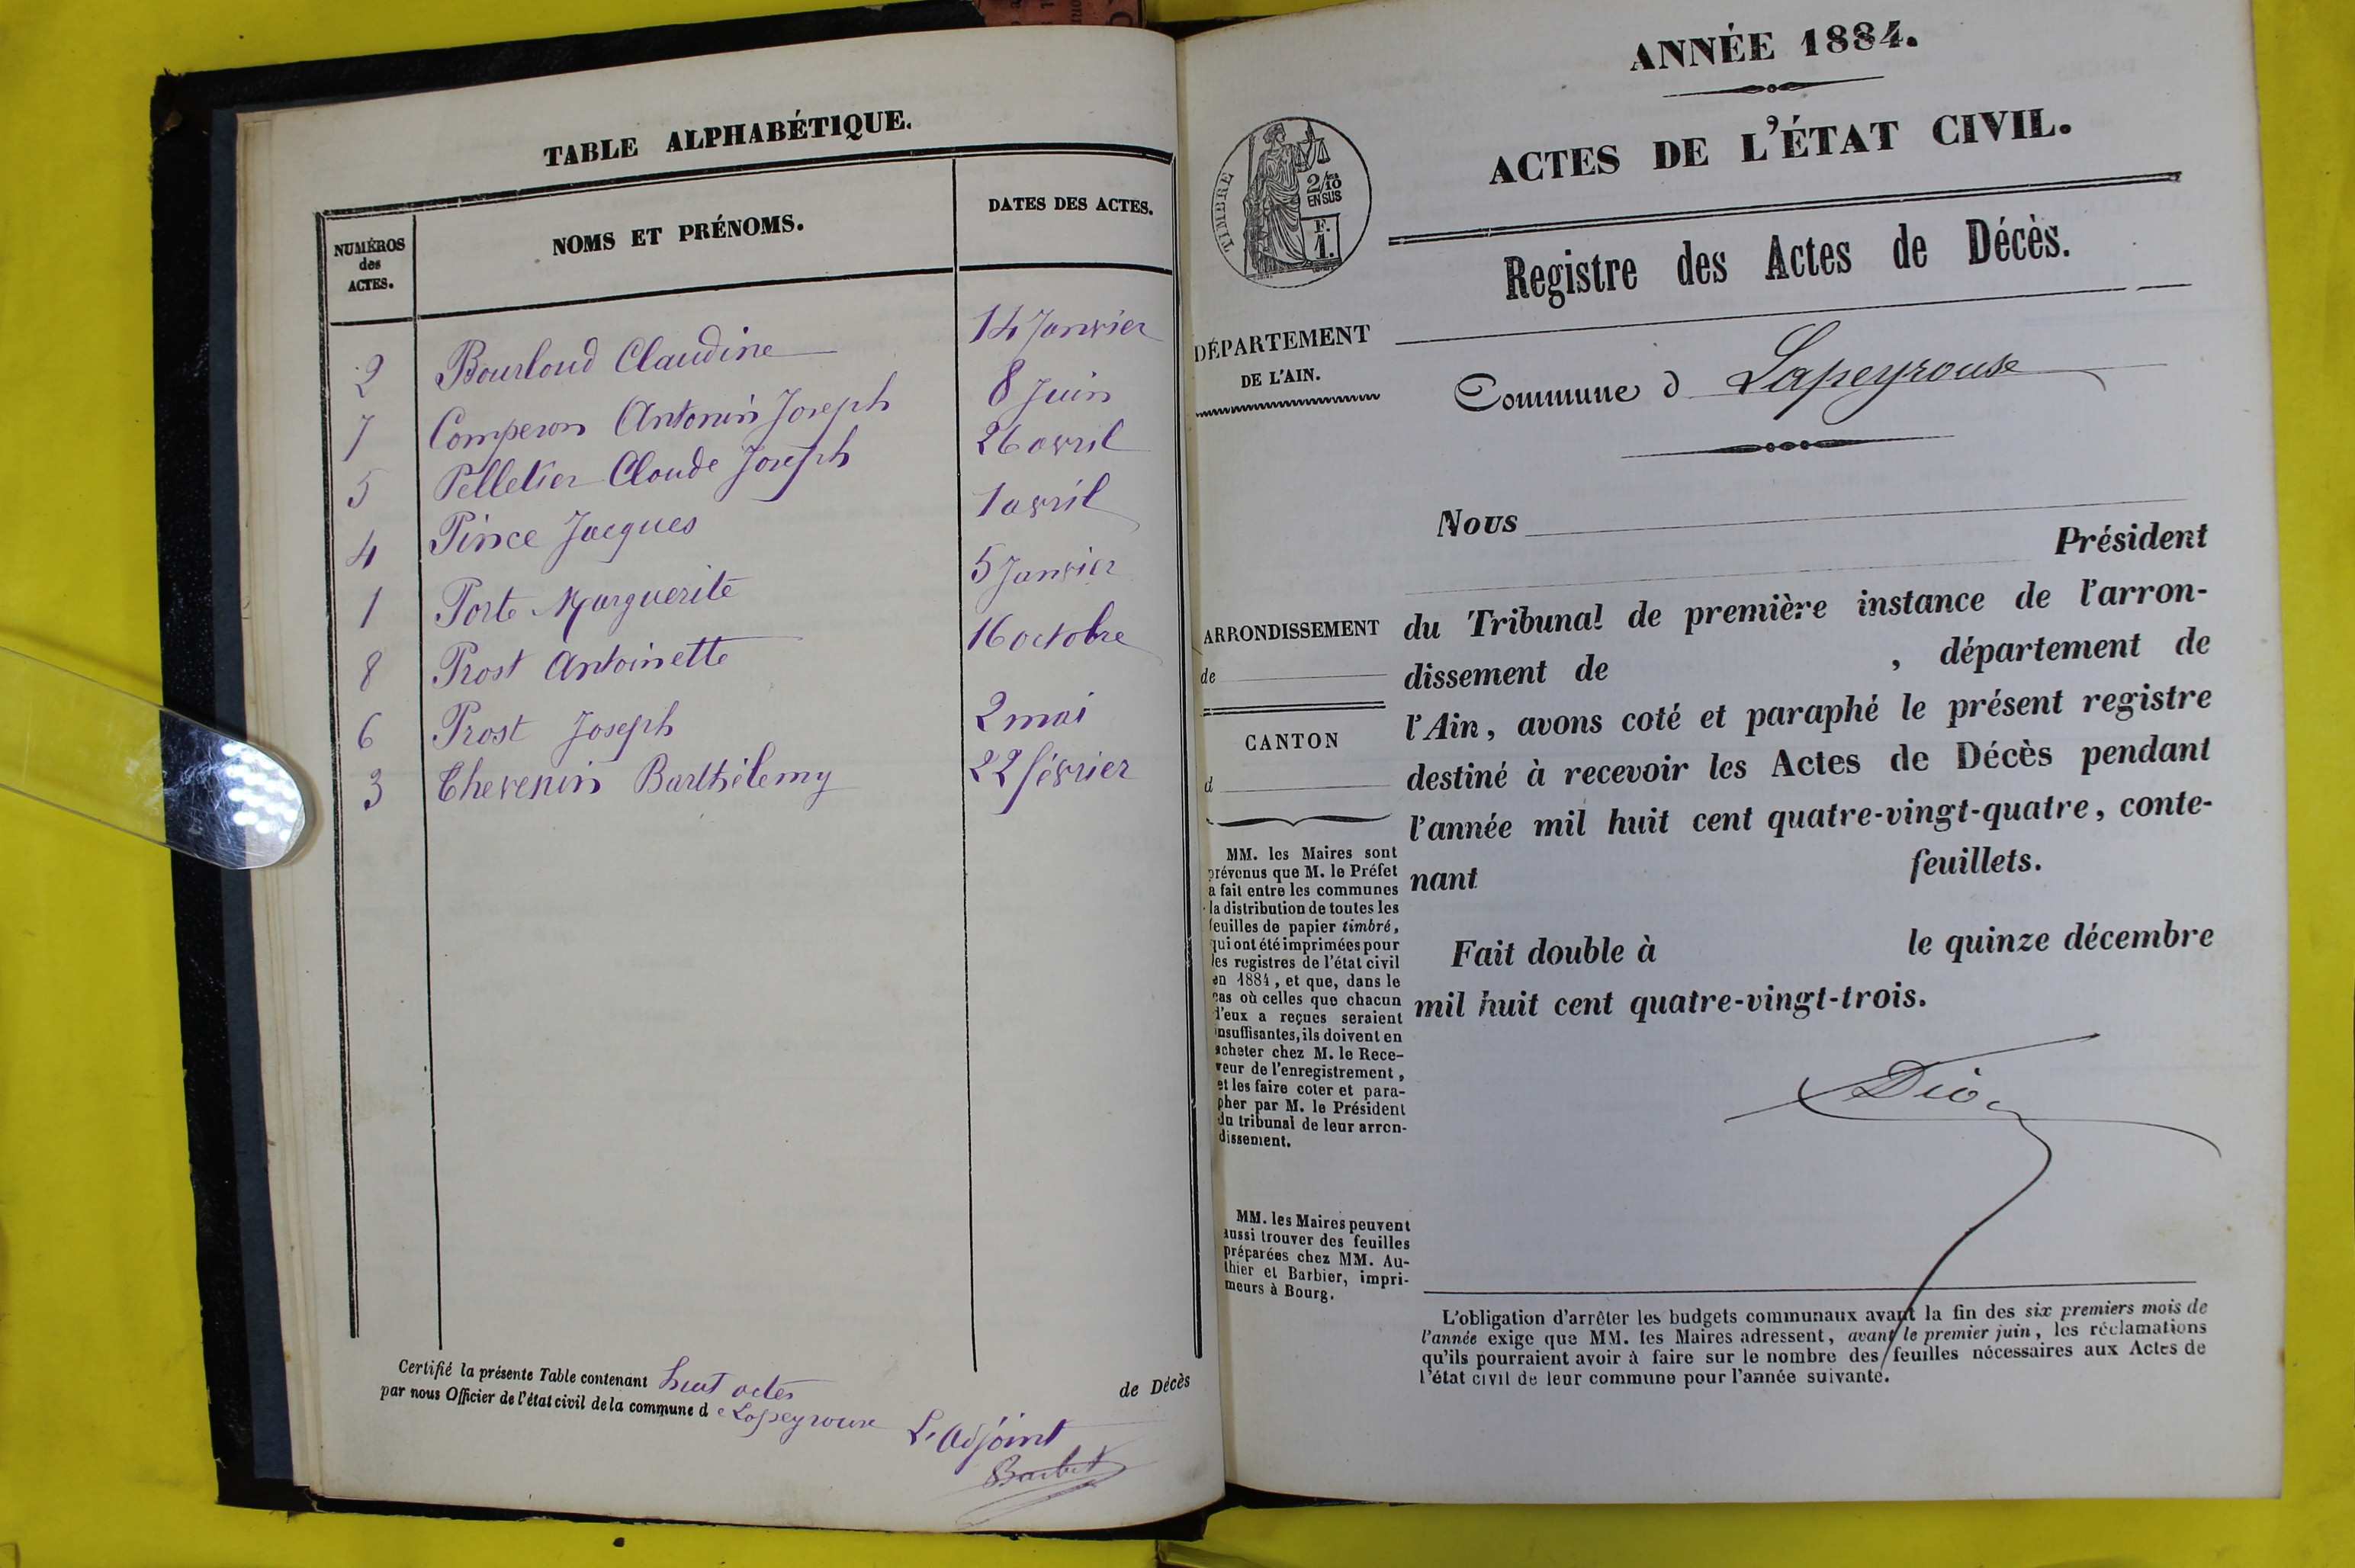 TABLE ALPHABÉTIQUE.
NUMÉROS
des
ACTES.
NOMS ET PRÉNOMS.
DATES DES ACTES.
2 Bourloud Claudine 14 Janvier
7 Comperon Antonin Joseph 8 Juin
5 Pelletier Claude Joseph 26 avril
4 Pince Jacques 1 avril
1 Porte Marguerite 5 Janvier
8 Prost Antoinette 16 octobre
6 Prost Joseph 2 mai
3 Thevenin Barthélemy 22 février
Certifié la présente Table contenant huit actes de Décès
par nous Officier de l'état civil de la commune d e Lapeyrouse
L'Adjoint
Barbet
ANNÉE 1884.
ACTES DE L'ÉTAT CIVIL.
TIMBRE
2/10
EN SUS
F.
1.
Registre des Actes de Décès.
DÉPARTEMENT
DE L'AIN.
Commune d Lapeyrouse
Nous
Président
du Tribunal de première instance de l'arron-
dissement de , département de
l'Ain, avons coté et paraphé le présent registre
destiné à recevoir les Actes de Décès pendant
l'année mil huit cent quatre-vingt-quatre, conte-
nant feuillets.
Fait double à le quinze décembre
mil huit cent quatre-vingt-trois.
ARRONDISSEMENT
de
CANTON
d
MM. les Maires sont
prévenus que M. le Préfet
a fait entre les communes
la distribution de toutes les
feuilles de papier timbré,
qui ont été imprimées pour
les registres de l'état civil
en 1884, et que, dans le
cas où celles que chacun
d'eux a reçues seraient
insuffisantes, ils doivent en
acheter chez M. le Rece-
veur de l'enregistrement,
et les faire coter et para-
pher par M. le Président
du tribunal de leur arron-
dissement.
MM. les Maires peuvent
aussi trouver des feuilles
préparées chez MM. Au-
thier et Barbier, impri-
meurs à Bourg.
L'obligation d'arrêter les budgets communaux avant la fin des six premiers mois de
l'année exige que MM. les Maires adressent, avant le premier juin, les réclamations
qu'ils pourraient avoir à faire sur le nombre des feuilles nécessaires aux Actes de
l'état civil de leur commune pour l'année suivante.